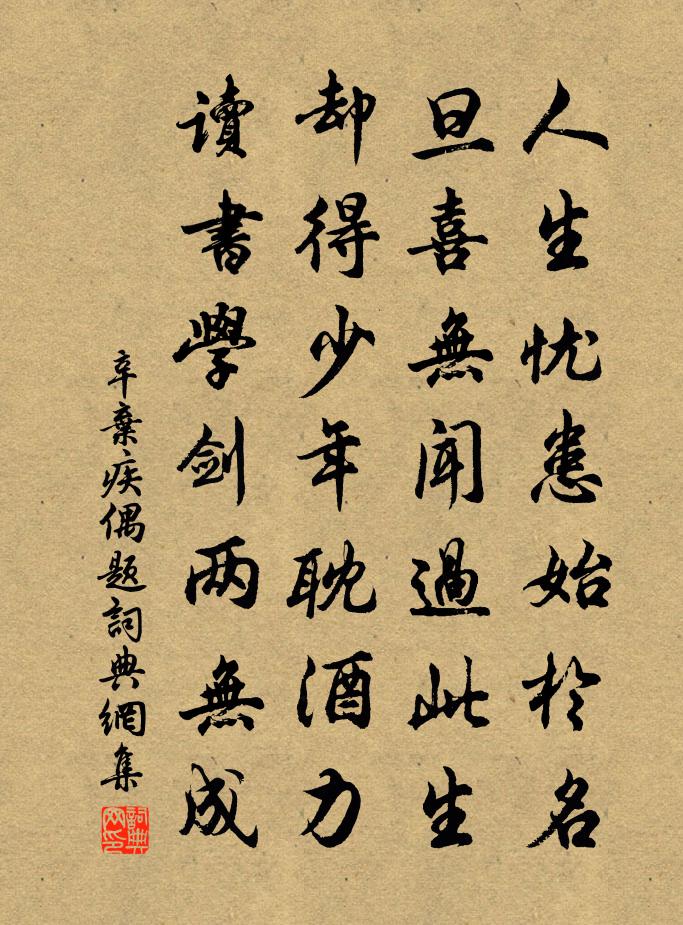 人生忧患始於名
旦喜無聞過此生
却得少年耽酒力
讀書學剑两無成
辛棄疾偶题詞典網集
詞典網印